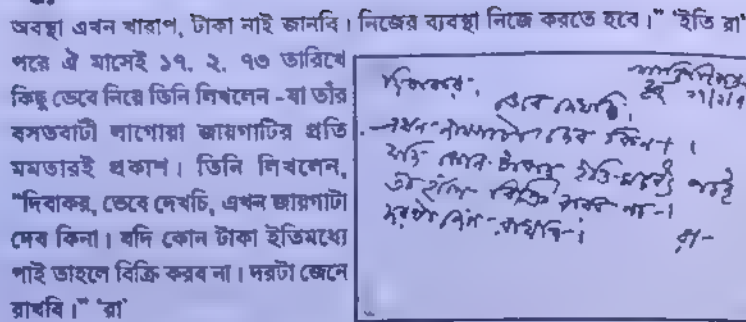 অবস্থা এখন খারাপ, টাকা নাই জানবি। নিজের ব্যবস্থা নিজে করতে হবে।" 'ইতি রা'
পরে ঐ মাসেই ১৭. ২. ৭৩ তারিখে
কিছু ভেবে নিয়ে তিনি লিখলেন -যা তাঁর
বসতবাটী লাগোয়া জায়গাটির প্রতি
মমতারই প্রকাশ। তিনি লিখলেন,
"দিবাকর, ভেবে দেখচি, এখন জায়গাটা
দেব কিনা। যদি কোন টাকা ইতিমধ্যে
পাই তাহলে বিক্রি করব না। দরটা জেনে
রাখবি।" 'রা'
দিবাকর,
ভেবে দেখচি,
এখন জায়গাটা দেব কিনা।
যদি কোন টাকা ইতিমধ্যে পাই
তা হলে বিক্রি করব না।
দরটা জেনে রাখবি।
রা-